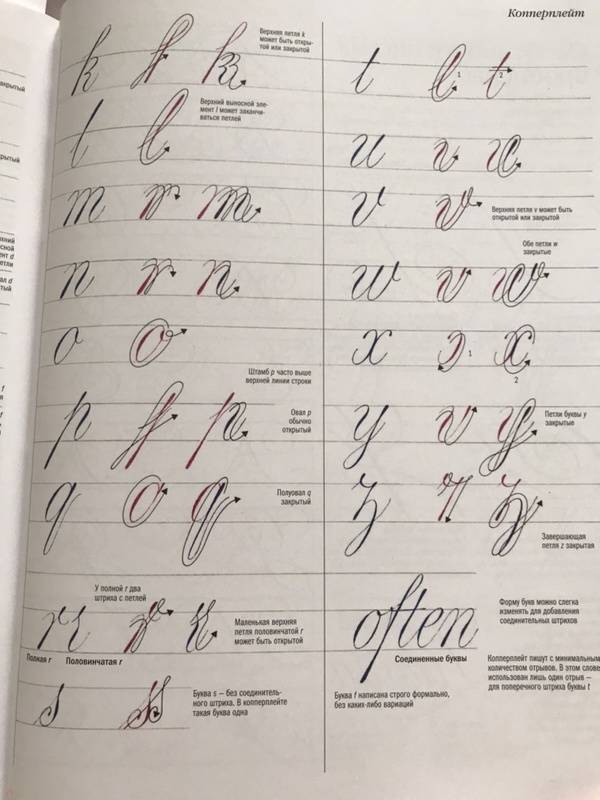 Копперплейт
k
Верхняя петля k
может быть откры-
той или закрытой
l
Верхний выносной эле-
мент l может заканчи-
ваться петлей
m
n
o
Штамб p часто выше
верхней линии строки
p
Овал p
обычно
открытый
q
Полуовал q
закрытый
У полной r два
штриха с петлей
r r
Маленькая верхняя
петля половинчатой r
может быть открытой
Полная r Половинчатая r
s
Буква s — без соединитель-
ного штриха. В копперплейте
такая буква одна
t
1 2
u
v
Верхняя петля v может быть
открытой или закрытой
Обе петли w
закрытые
w
x
1
2
y
Петли буквы y
закрытые
z
Завершающая
петля z закрытая
often
Форму букв можно слегка
изменять для добавления
соединительных штрихов
Соединенные буквы
Копперплейт пишут с минимальным
количеством отрывов. В этом слове
использован лишь один отрыв —
для поперечного штриха буквы t
Буква f написана строго формально,
без каких-либо вариаций